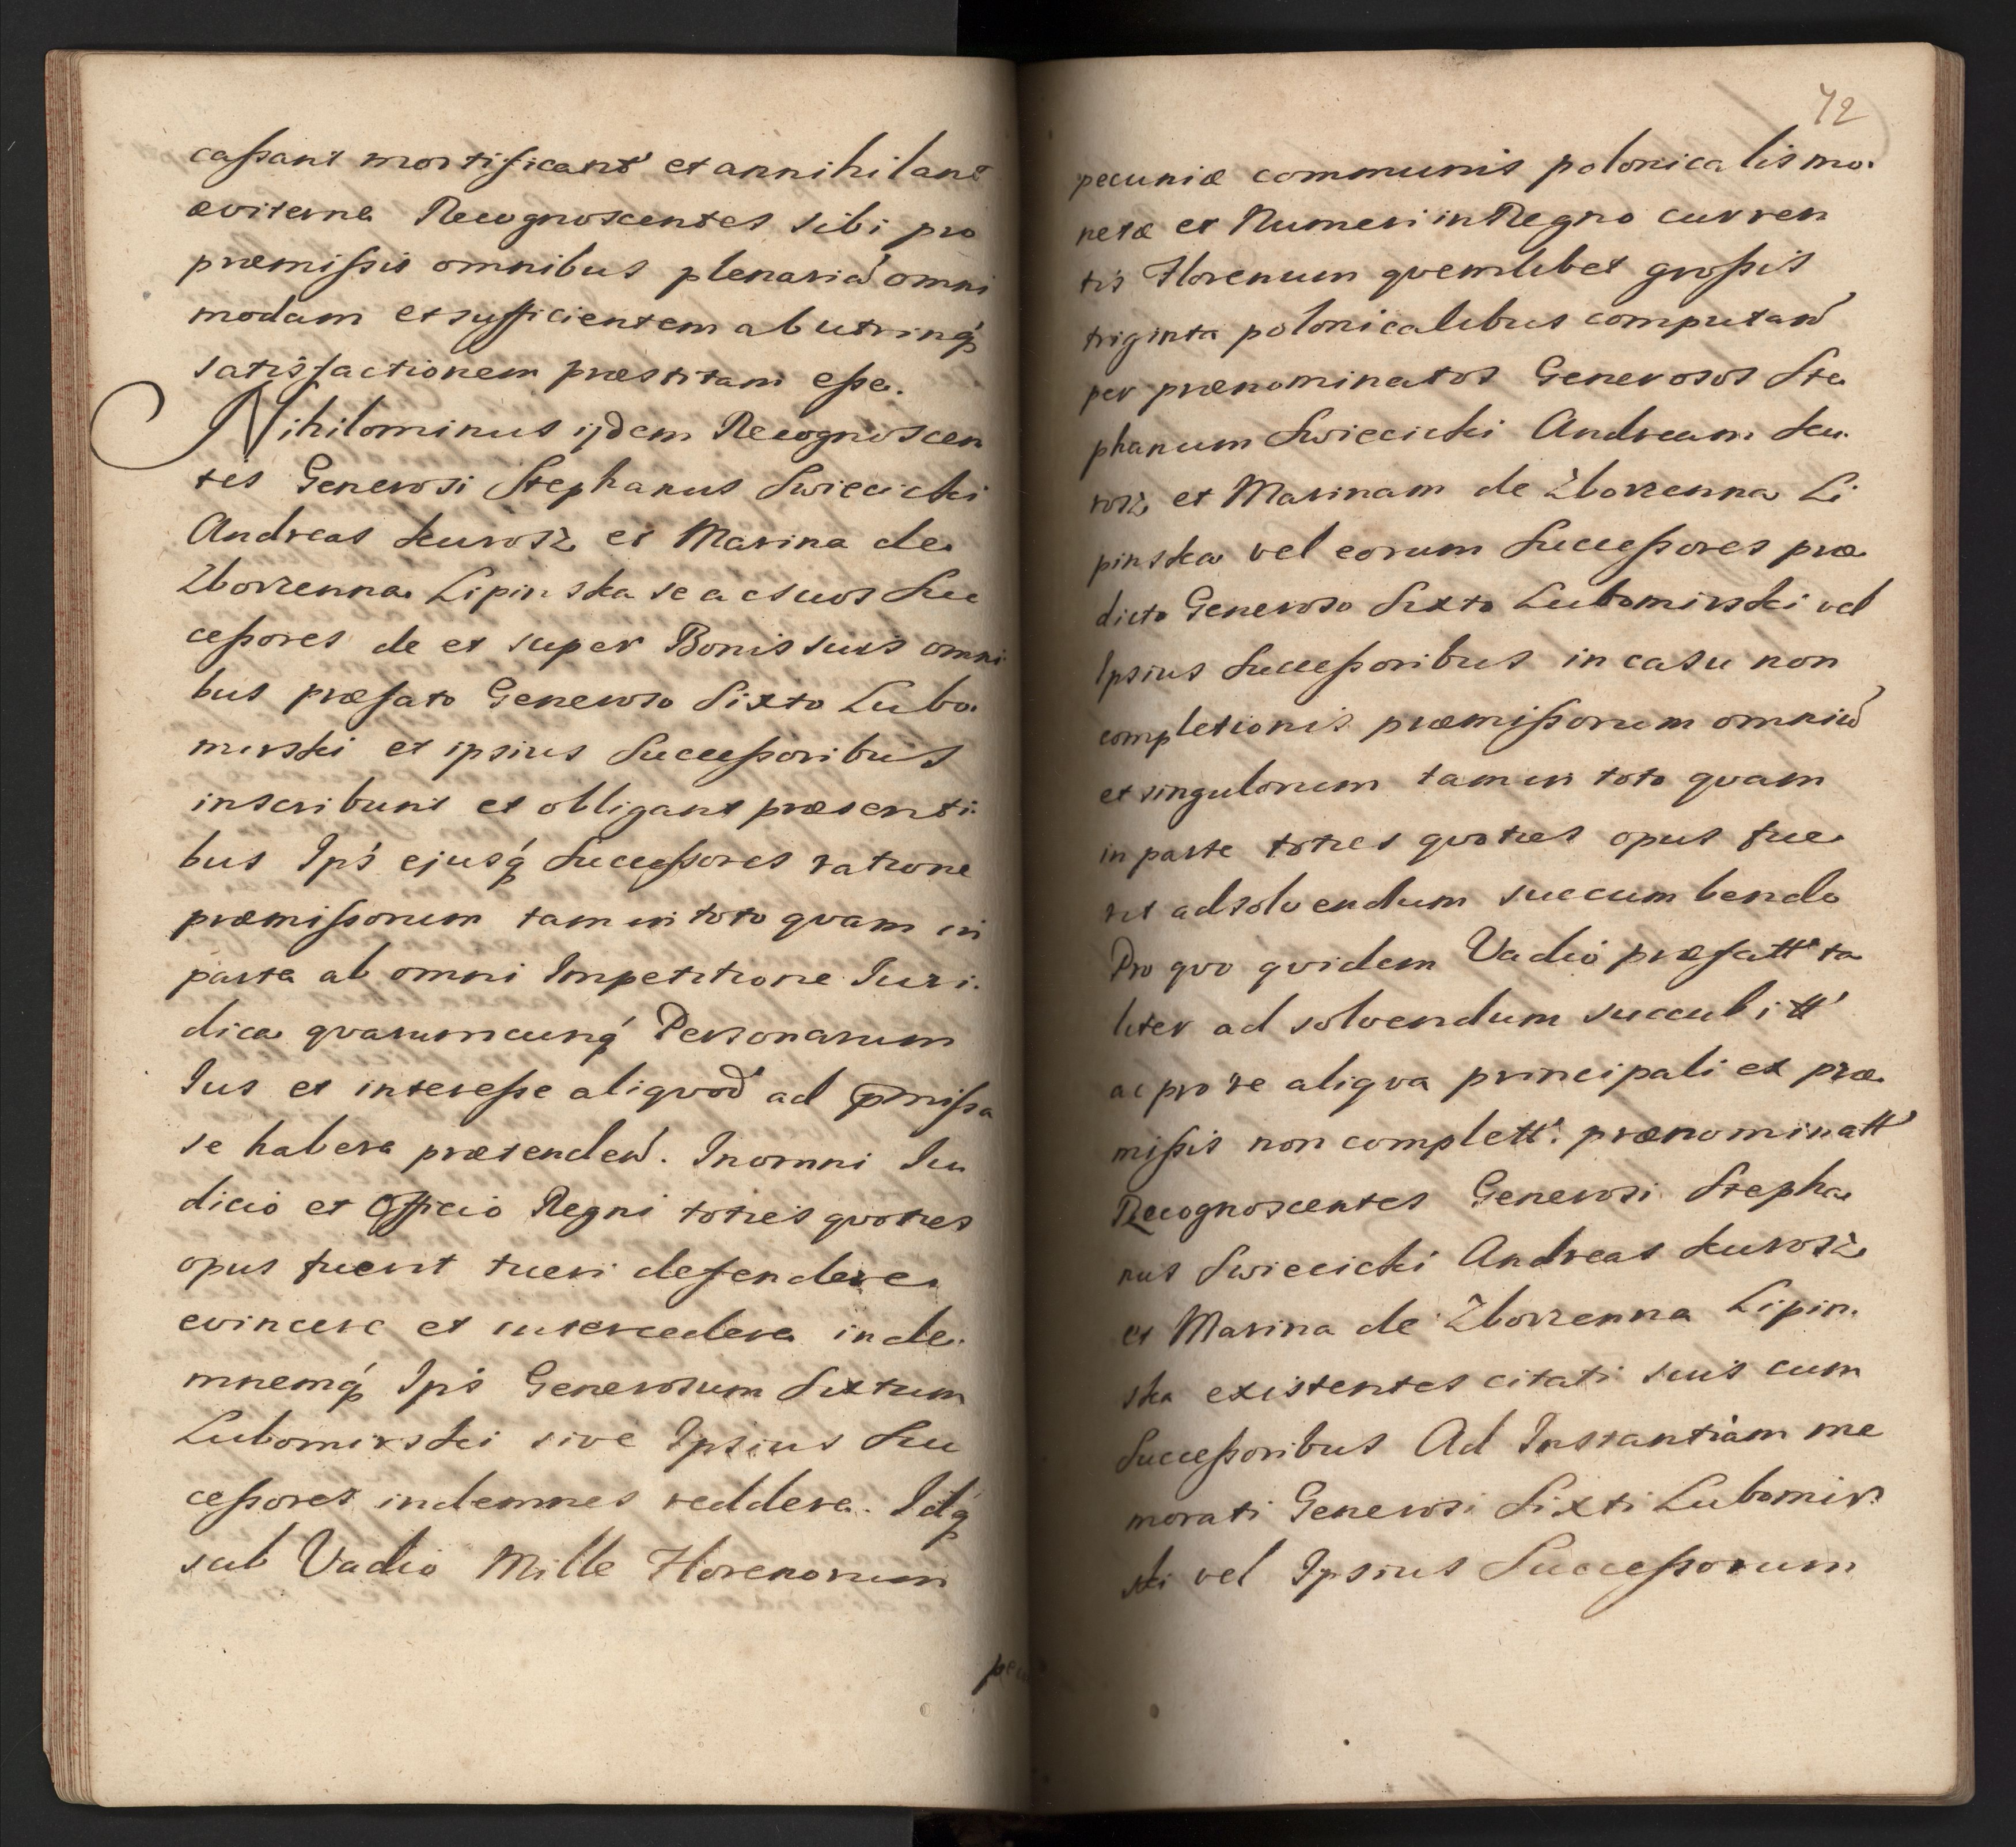 caſsant mortificant et annihilant
æviterne Recognoscentes sibi pro
præmiſsis omnibus plenariam̃ omni
modam et sufficientem ab utrinq́
satisfactionem præstitam eſse.
Nihilominus ijdem Recognoscen
tes Generosi Stephanus Swiecicki
Andreas Kurosz et Marina de
Zborzenna Lipinska se ac suos Suc
ceſsores de et super Bonis suis omni
bus præfato Generoso Sixto Lubo
mirski et ipsius Succeſsoribus
inscribunt et obligant præsenti.
bus Ips̃ ejusq́ Succeſsores ratione
præmiſsorum tam in toto qvam in
parte ab omni Impetitione Juri.
dica qvarumcunq́ Personarum
Jus et intereſse aliqvod ad p̃miſsa
se habere prætenden̄. In omni Ju
dicio et Officio Regni toties qvoties
opus fuerit tueri defendere
evincere et intercedere inde.
mnemq́ Ips̃ Generosum Sixtum
Lubomirski sive Ipsius Suc
ceſsores indemnes reddere. Idq́
sub Vadio Mille Florenorum
pecu
72
pecuniæ communis polonicalis mo.
netæ et Numeri in Regno curren
tis Florenum qvemlibet groſsis
triginta polonicalibus computan̄
per prænominatos Generosos Ste
phanum Swiecicki Andream Ku.
rosz et Marinam de Zborzenna Li
pinska vel eorum Succeſsores præ
dicto Generoso Sixto Lubomirski vel
Ipsius Succeſsoribus in casu non
completionis præmiſsorum omniũ
et singulorum tam in toto qvam
in parte toties qvoties opus fue
rit ad solvendum succumbendo
Pro qvo qvidem Vadio præfatt̃ ta
liter ad solvendum succubitt̃
ac pro re aliqva principali ex præ
miſsis non complett̃. prænominatt̃
Recognoscentes Generosi Stepha
nus Swiecicki Andreas Kurosz
et Marina de Zborzenna Lipin.
ska existentes citati suis cum
Succeſsoribus Ad Instantiam me
morati Generosi Sixti Lubomir.
ski vel Ipsius Succeſsorum